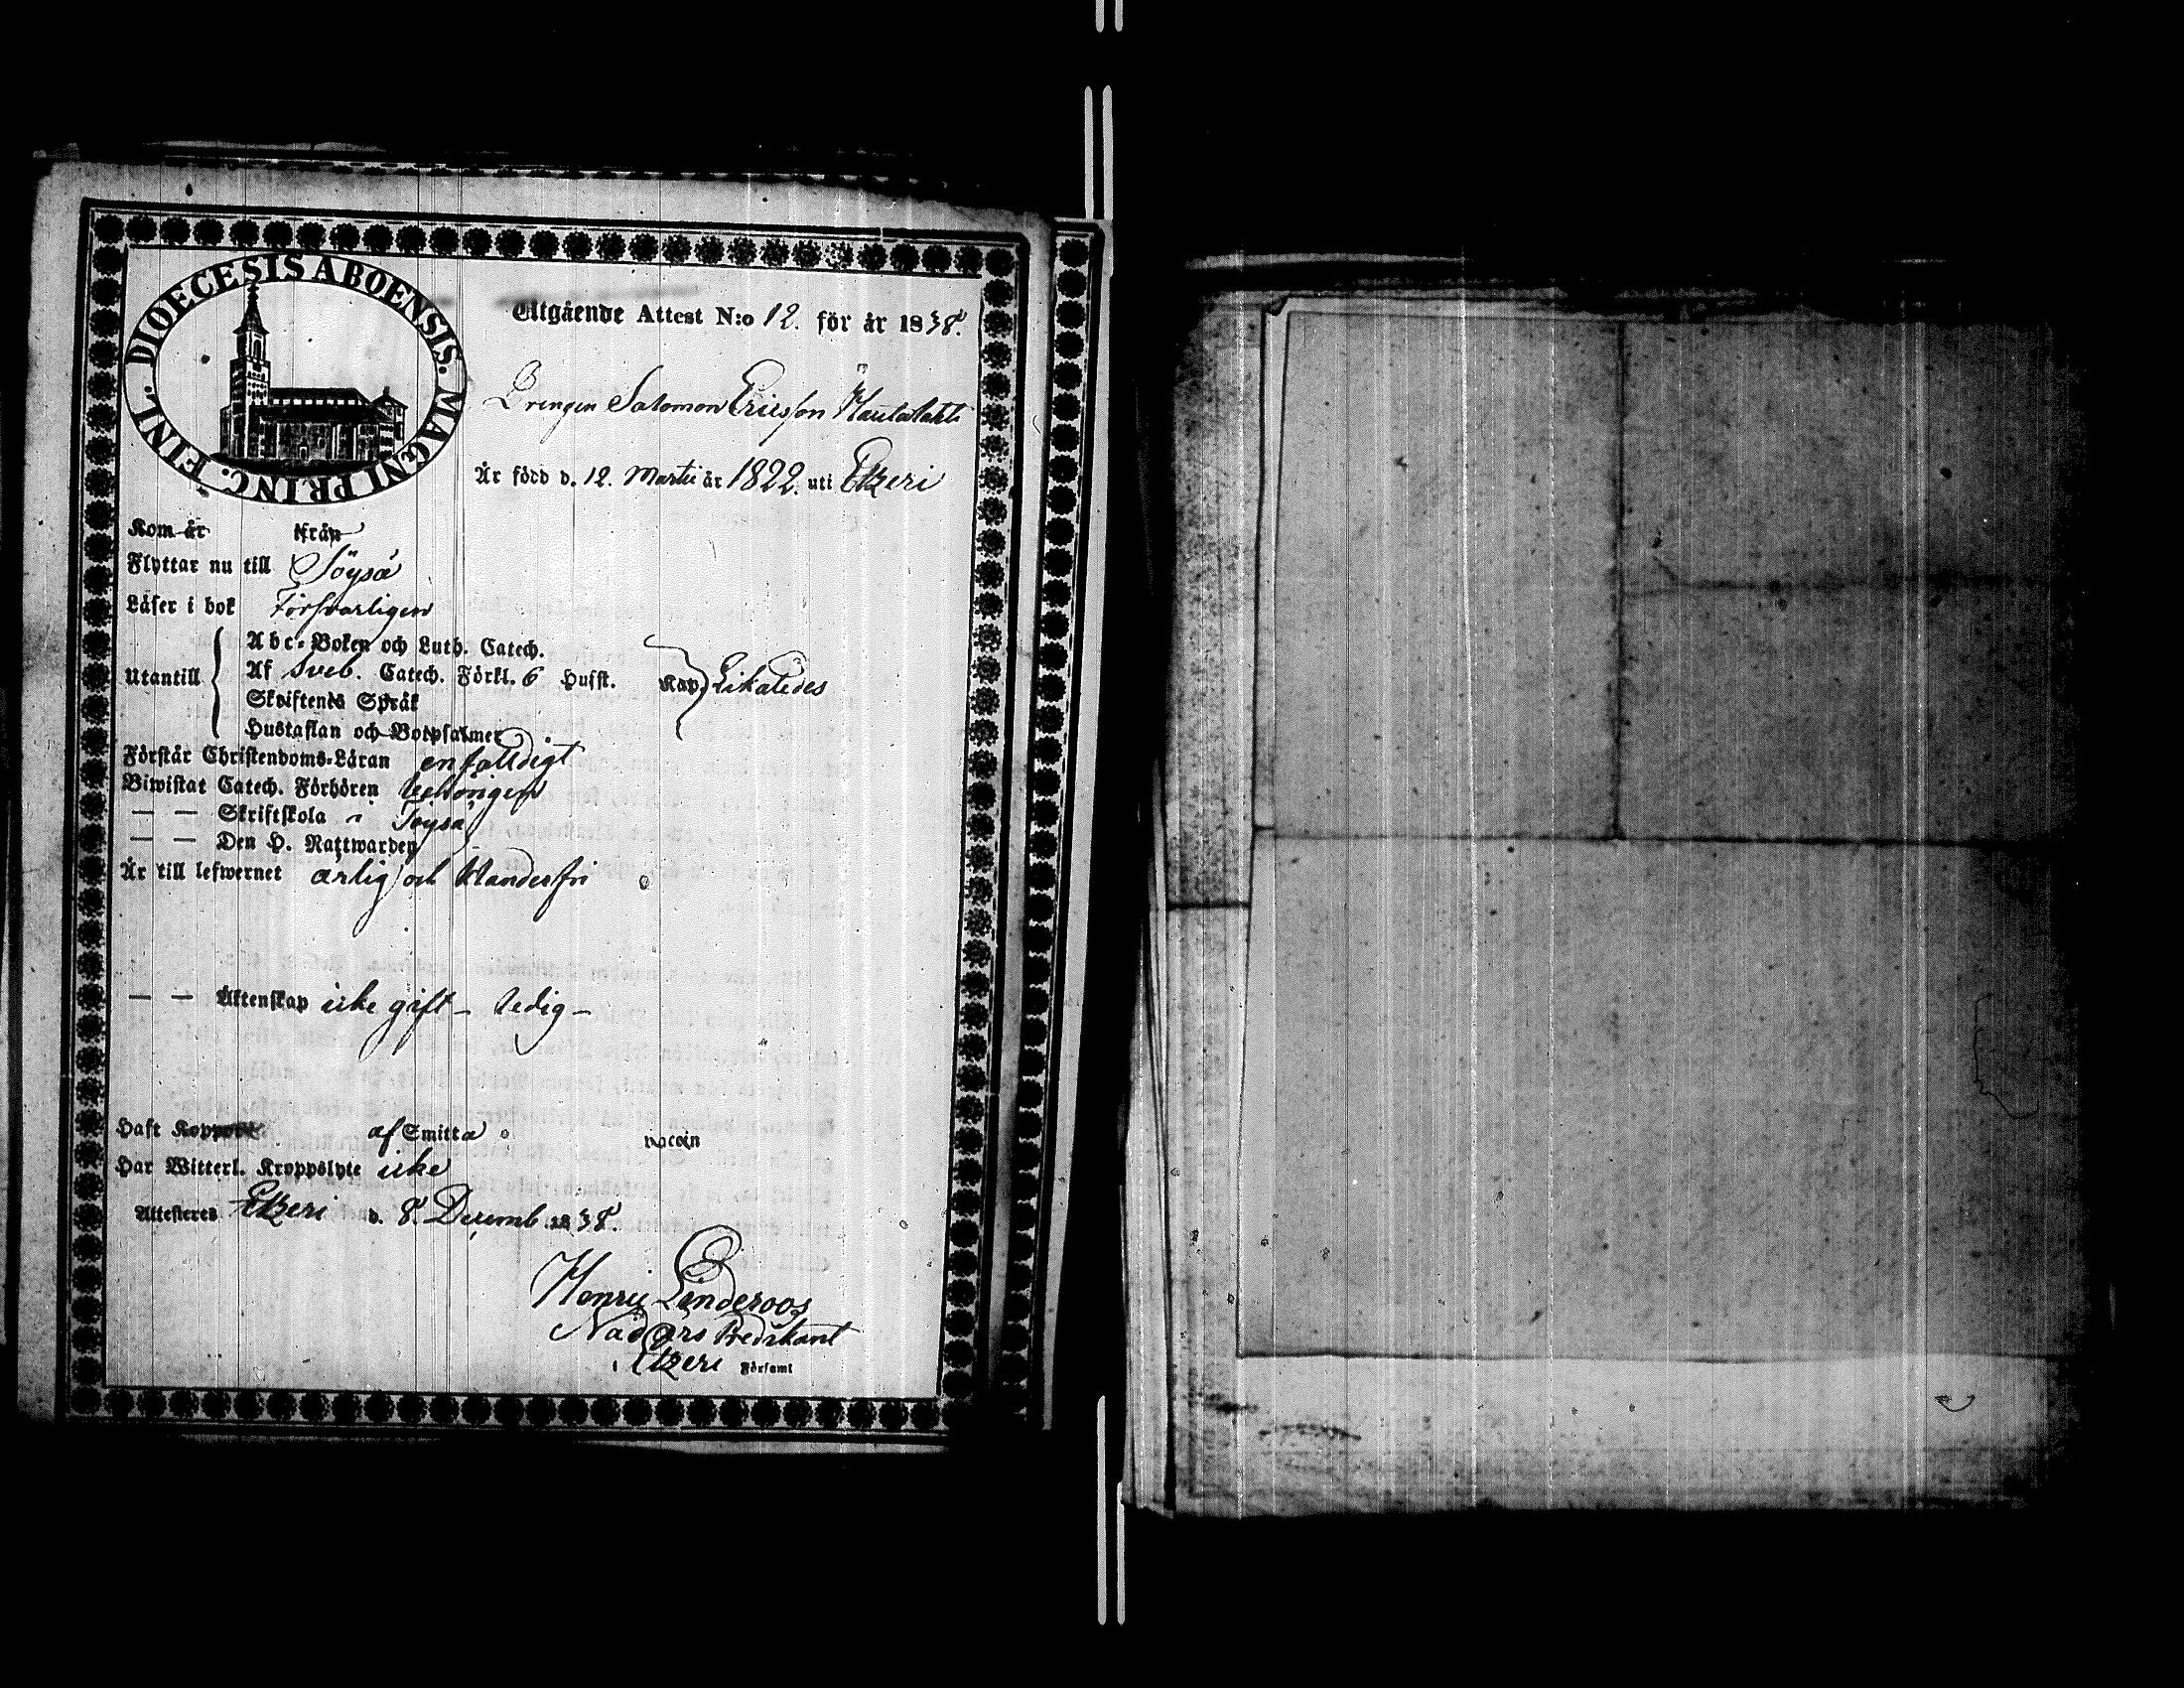 DIOECESIS ABOENSIS. MAGNI PRINC. FINL.
Utgående Attest N:o 12. för år 1838.
Drengen Salomon Ericsson
Är född d. 12. Martii år 1822. uti Etzeri
Kom år från
Flyttar nu till Töysä
Läser i bok Försvarligen
Utantill
Abc-Boken och Luth. Catech.
Af Sveb. Catech. Förkl. 6 Hufst. Kap Likaledes
Skriftenes Språk
Hustaflan och Botpsalmer
Förstår Christendoms-Läran enfalldigt
Biwistat Catech. Förhören behörigen
— — Skriftskola i Töysä
— — Den H. Nattwarden
Är till lefwernet ärlig och klanderfri
— — Äktenskap icke gift - ledig -
Haft Koppor af Smitta Vaccin
Har Witterl. Kroppslyte icke
Attesteres Etzeri d. 8. Decemb. 1838.
Henric Linderoos
Nådårs Predikant
i Etzeri Församl